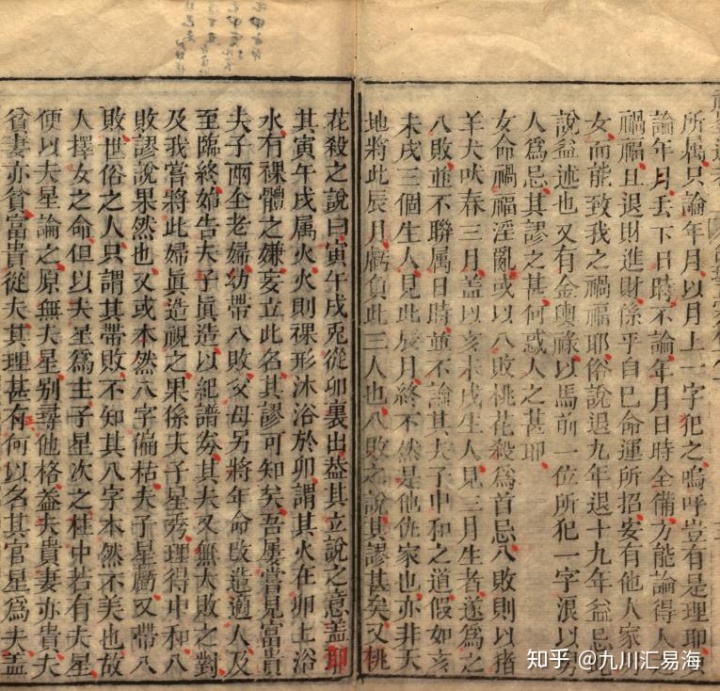 所属只論年月以月上一字犯之嗚呼豈有是理耶
論年月丟下日時不論年月日時全備方能論得人之
禍福且退財進財係乎自已命運所招安有他人家
女而能致我之禍福耶俗說退九年退十九年益忌
說益述也又有金輿祿以馬前一位所犯一字浪以
人爲忌其謬之甚何惑人之甚耶
女命禍福淫亂或以八敗桃花殺爲首忌八敗則以猪
羊犬吠春三月盖以亥未戌生人見三月生者遂爲之
八敗並不聯属日時並不論其夫子中和之道假如亥
未戌三個生人見此辰月終不然是他仇家也亦非天
地將此辰月虧負此三人也八敗之說其謬甚矣又桃
花殺之說曰寅午戌兎從卯裏出益其立說之意盖卯
其寅午戌属火火則裸形沐浴於卯謂其火在卯上浴
水有裸體之嫌妄立此名其謬可知矣吾屢嘗見富貴
夫子兩全老婦幼帶八敗父母另將年命改造適人及
至臨終婦告夫子眞造以紀譜券其夫又無大敗之對
及我嘗將此婦眞造視之果係夫子星秀理得中和八
敗謬說果然也又或本然八字偏枯夫子星虧又帶八
敗世俗之人只謂其帶敗不知其八字本然不美也故
人擇女之命但以夫星爲主子星次之柱中若有夫星
便以夫星論之原無夫星别尋他格益夫貴妻亦貴夫
貧妻亦貧富貴從夫其理甚有何以名其官星爲夫盖
知乎 @九川汇易海